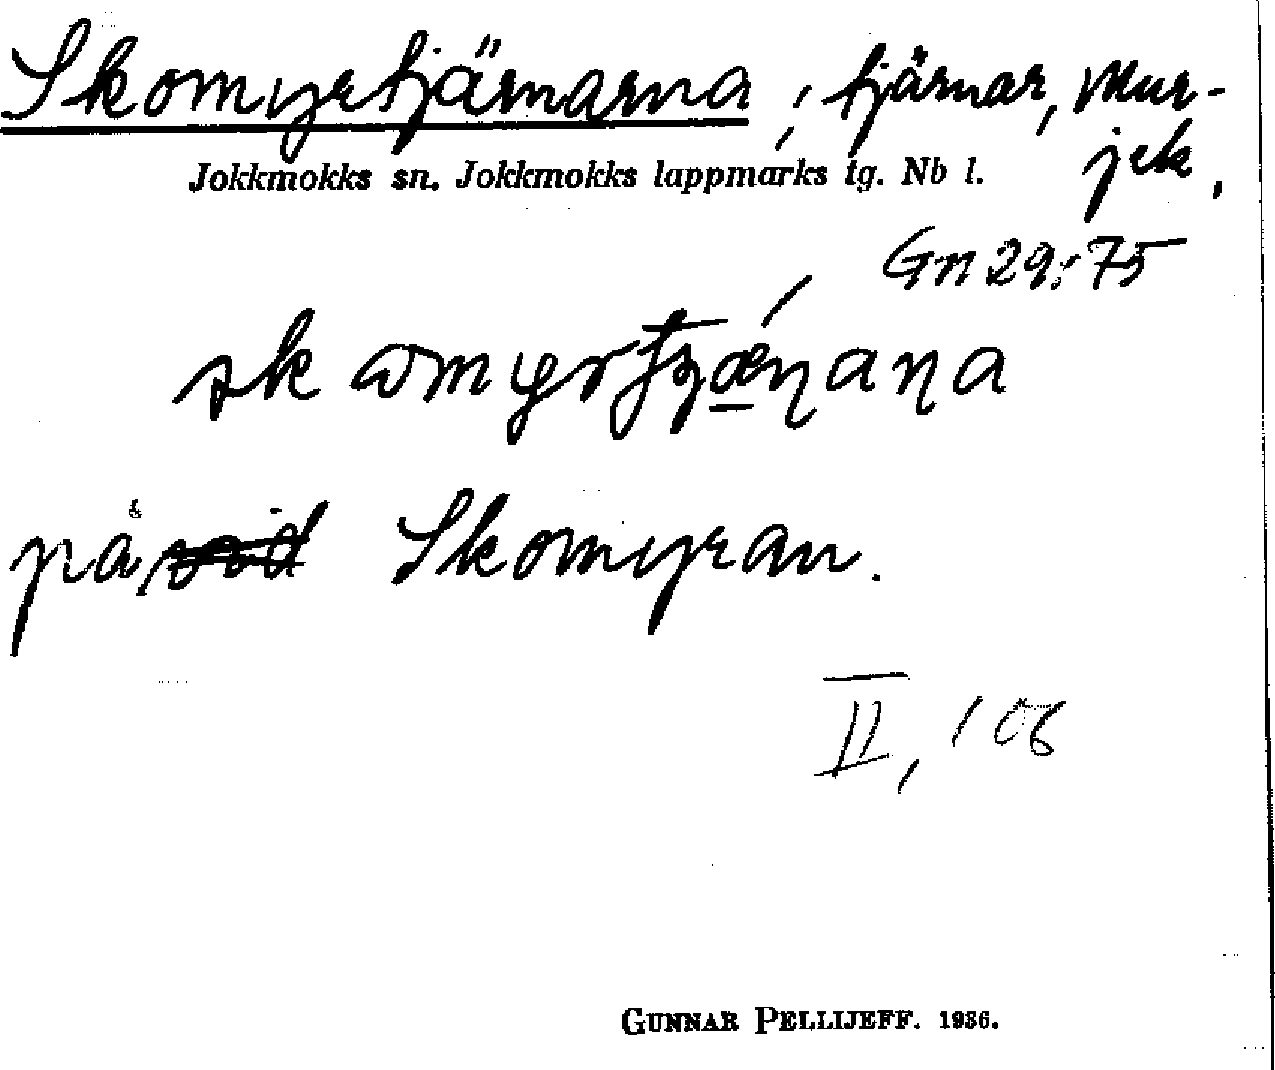 Skomyrtjärnarna, tjärnar, Mur-
jek,
Jokkmokks sn. Jokkmokks lappmarks tg. Nb l.
Gn 29:75
på Skomyran.
II, 106
GUNNAR PELLIJEFF. 1936.